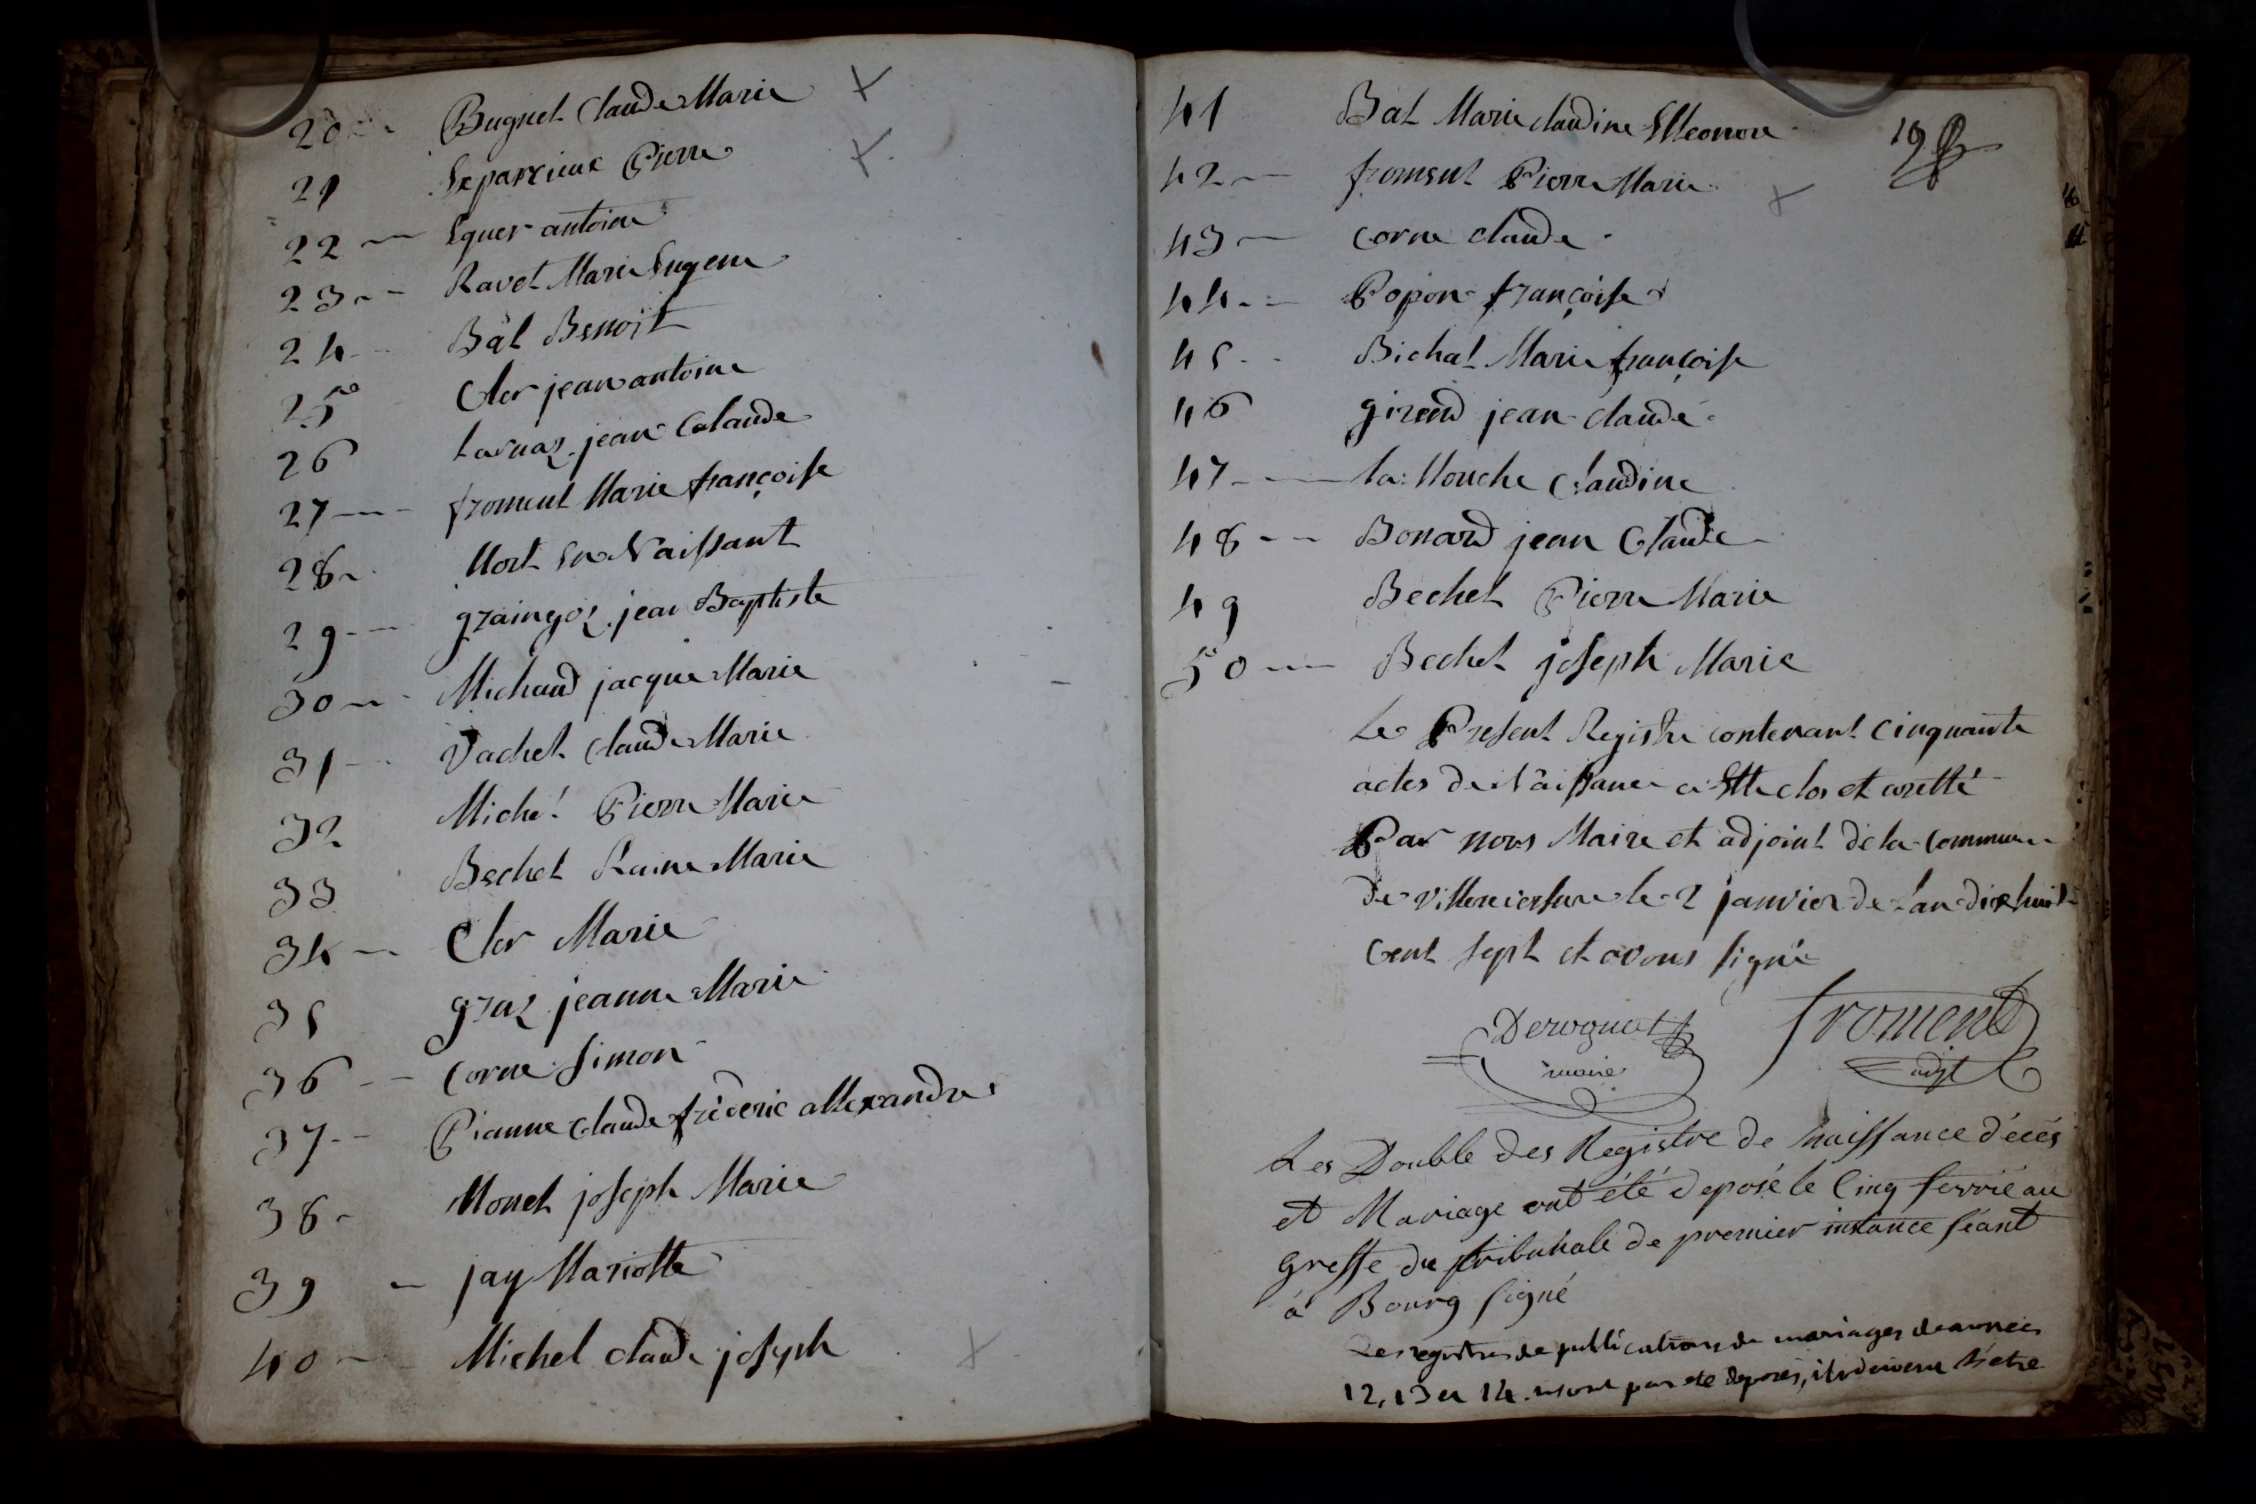 20 Buguet Claude Marie
21 Separcieux Pierre
22 Eguer antoine
23 Ravet Marie Eugene
24 Bàl Benoit
25 Cler jean antoine
26 tarnaz jean Calaude
27 froment Marie françoise
28 Mort en Naissant
29 graingoz jean Baptiste
30 Michaud jacque Marie
31 Vachet Claude Marie
32 Michel Pierre Marie
33 Bechet Raine Marie
34 Cler Marie
35 gruz jeanne Marie
36 Corne Simon
37 Pianne Claude fréderic allexandre
38 Monet joseph Marie
39 jay Mariotte
40 Michel claude joseph
41 Bal Marie claudine Elleonore
19
42 froment Pierre Marie
43 Corne claude
44 Popon françoise
45 Bichat Marie françoise
46 giraud jean claude
47 la Mouche Claudine
48 Bonard jean Claude
49 Bechet Pierre Marie
50 Bechet joseph Marie
Le Present Registre contenant Cinquante
actes de Naissance a Etté clos et aretté
Par nous Maire et adjoint de la Commune
de villereversure le 2 janvier de Lan dix huit
Cent Sept et avons Signé
Derognat froment
maire adjt
Les Double des Registre de Naissance décés
et Mariage ont été deposé le Cinq fevrié au
greffe du tribunale de premier instance séant
à Bourg signé
Les registres de publications de mariages de années
12, 13 et 14 n'ont pas été deposés, ils doivent l'etre